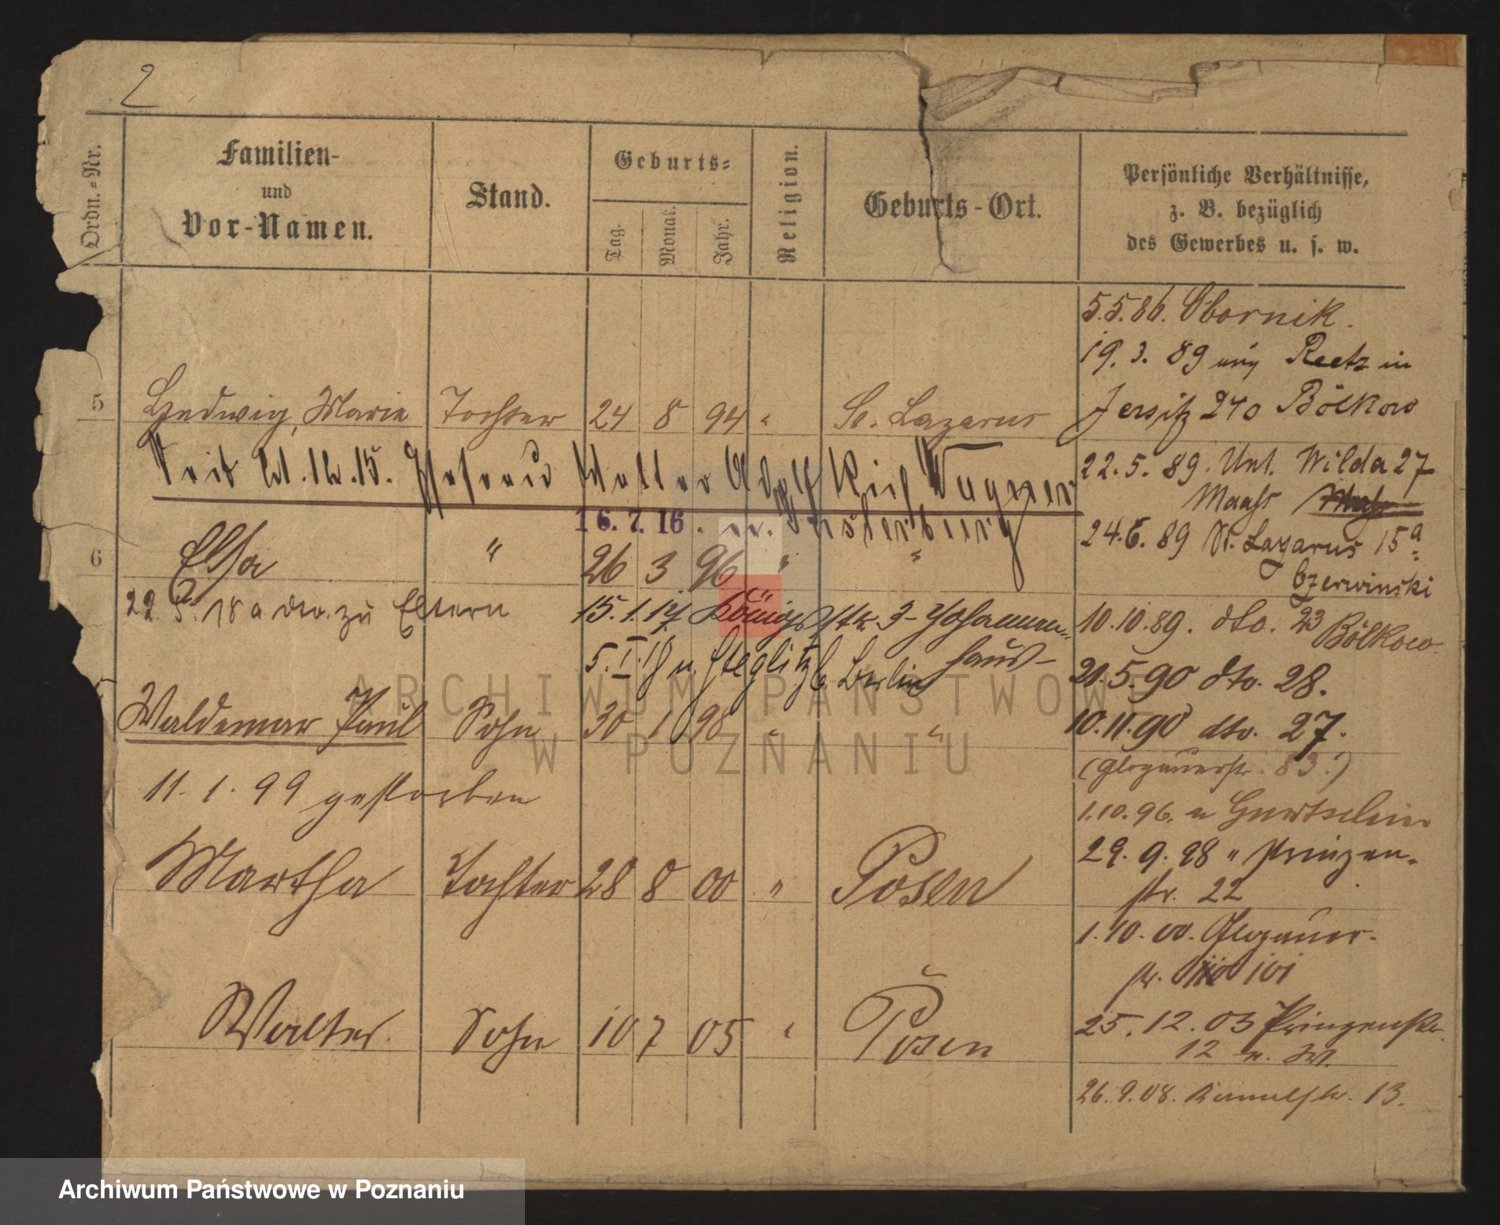 2
Ordn.-Nr.
Familien-
und
Vor-Namen.
Stand.
Geburts-
Tag.
Monat.
Jahr.
Religion.
Geburts-Ort.
Persönliche Verhältnisse,
z. B. bezüglich
des Gewerbes u. s. w.
5.5.86. Obornik.
19. 3. 89 Reetz in
Jersitz 270 Bölkow
5 Hedwig, Marie Tochter 24 8 94 " St. Lazarus
22. 5. 89. Unt. Wilda 27
Maahs
Seit Walter Adolf Rich Wagner
16. 7. 16. n. Insterburg
24. 6. 89 St. Lazarus 15a
Czerwinski
6 Elsa " 26 3 96 " "
22. 5. 18 a dto. zu Eltern
15. 1. 17 Königstr. 3 Johannen-
haus
10. 10. 89. dto. 23 Bölkow.
5. I. 18 n. Steglitz b. Berlin
21. 5. 90 dto. 28.
Waldemar Paul Sohn 30 1 98 " "
10. 11. 90 dto. 27.
(Glogauerstr. 83.)
11. 1. 99 gestorben
1. 10. 96. n Gurtschin
29. 9. 98 " Prinzen-
str. 22
Martha Tochter 28 8 00 " Posen
1. 10. 00. Glogauer-
str. 101
Walter. Sohn 10 7 05 " Posen
25. 12. 03 Prinzenstr.
12
26. 9. 08. 13.
ARCHIWUM PAŃSTWOWE
W POZNANIU
Archiwum Państwowe w Poznaniu